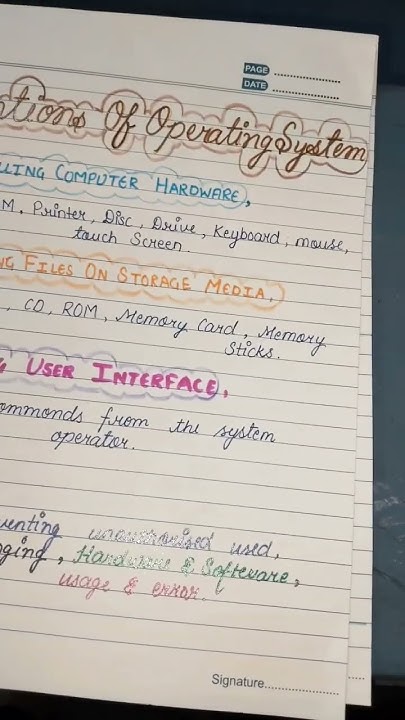 PAGE
DATE
tions Of Operating System
LLING COMPUTER HARDWARE,
M, Printer, Disc, Drive, Keyboard, mouse,
touch Screen.
NG FILES ON STORAGE MEDIA,
, CD, ROM, Memory Card, Memory
Sticks.
G USER INTERFACE,
ommonds from the system
operator.
venting used,
ging, Hardware & Software,
usage & error.
Signature